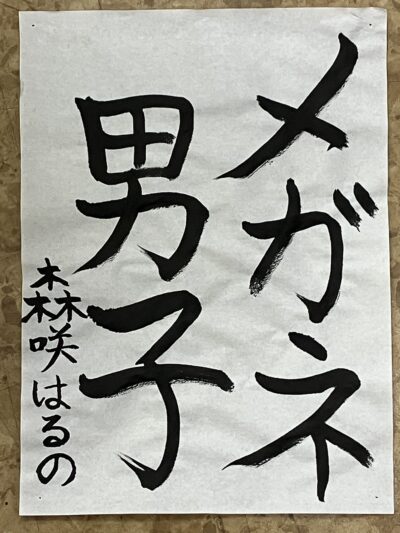 メガネ
男子
森咲はるの